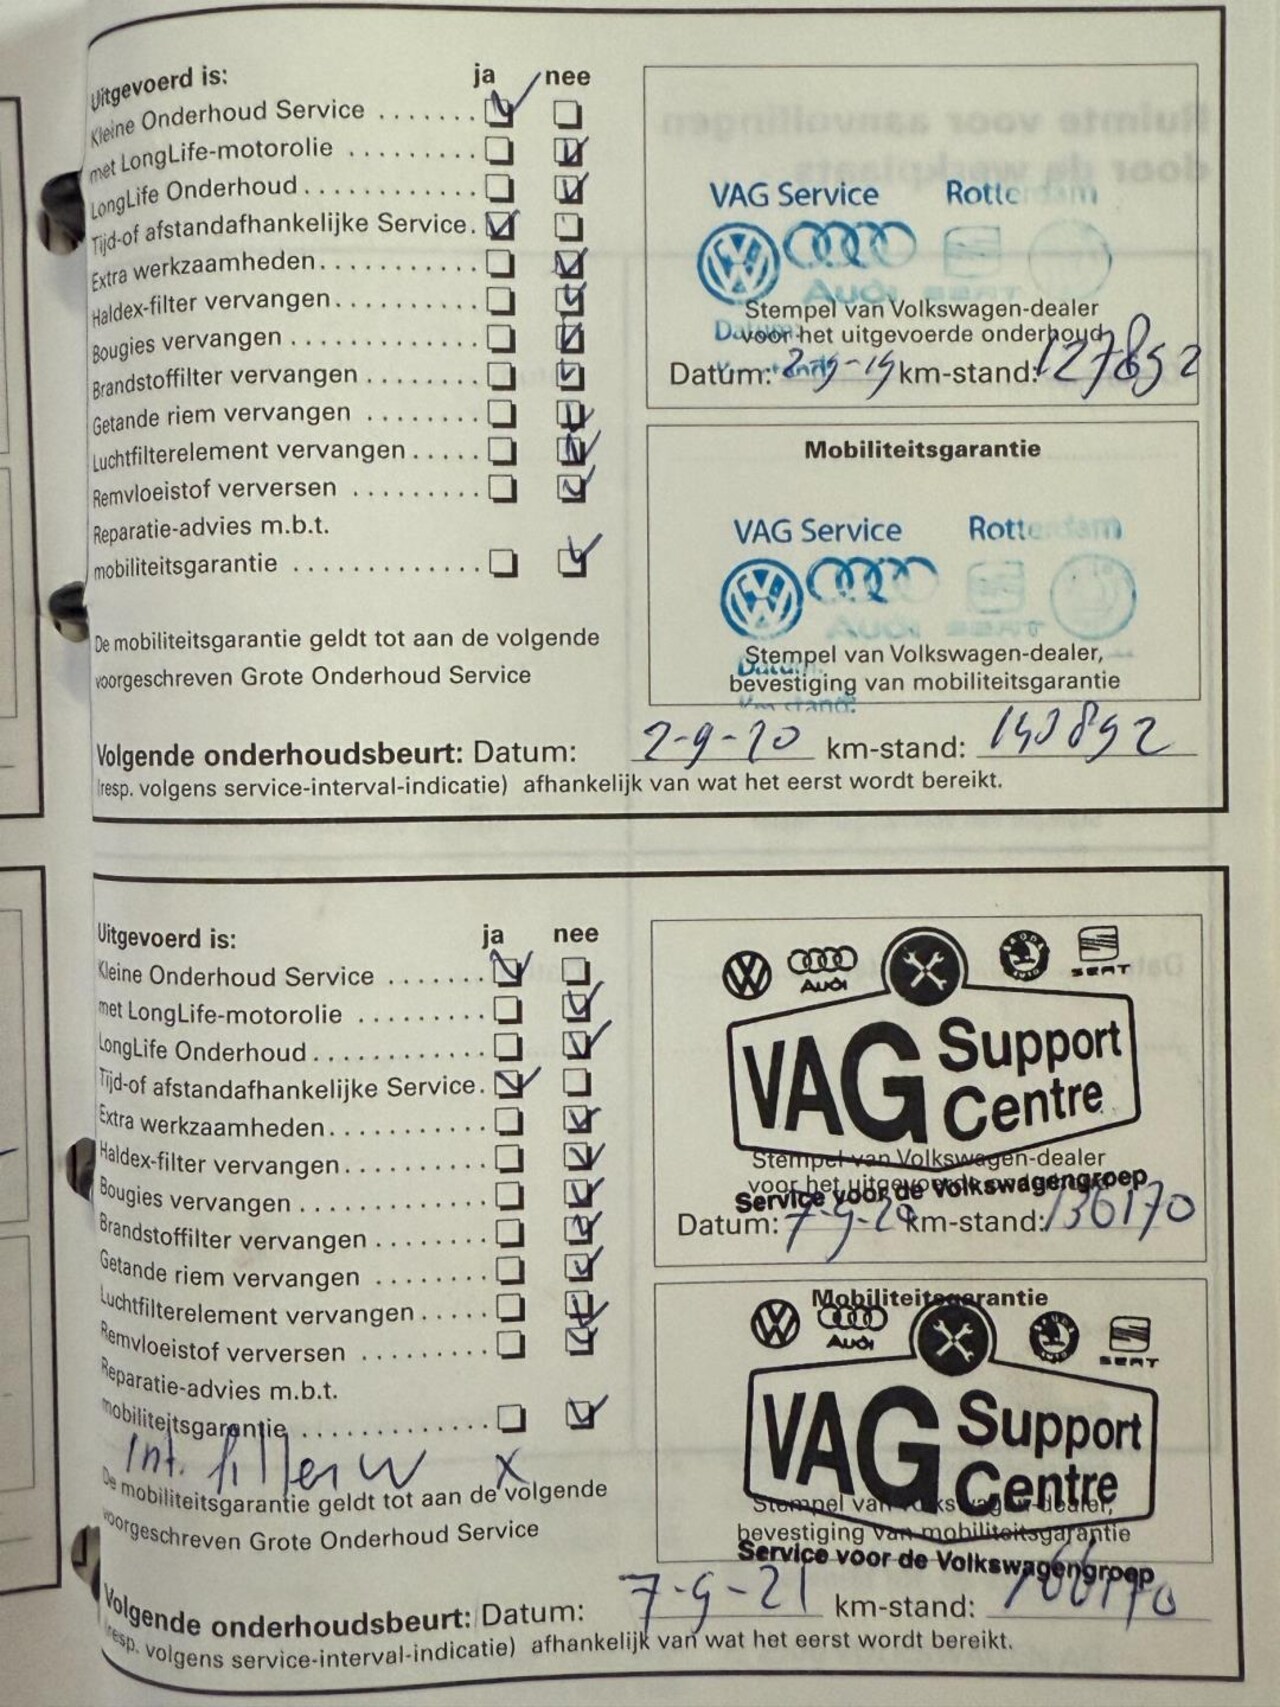 Uitgevoerd is: ja nee
Kleine Onderhoud Service .......
met LongLife-motorolie .........
LongLife Onderhoud............
Tijd-of afstandafhankelijke Service.
Extra werkzaamheden...........
Haldex-filter vervangen..........
Bougies vervangen .............
Brandstoffilter vervangen ........
Getande riem vervangen ........
Luchtfilterelement vervangen .....
Remvloeistof verversen .........
Reparatie-advies m.b.t.
mobiliteitsgarantie .............
De mobiliteitsgarantie geldt tot aan de volgende
voorgeschreven Grote Onderhoud Service
VAG Service Rotterdam
Audi SEAT
Stempel van Volkswagen-dealer
voor het uitgevoerde onderhoud
Datum: 2-9-19 km-stand: 127892
Mobiliteitsgarantie
VAG Service Rotterdam
Audi SEAT
Stempel van Volkswagen-dealer,
bevestiging van mobiliteitsgarantie
Datum:
Km stand:
Volgende onderhoudsbeurt: Datum: 2-9-20 km-stand:
(resp. volgens service-interval-indicatie) afhankelijk van wat het eerst wordt bereikt.
Uitgevoerd is: ja nee
Kleine Onderhoud Service .......
met LongLife-motorolie .........
LongLife Onderhoud............
Tijd-of afstandafhankelijke Service.
Extra werkzaamheden...........
Haldex-filter vervangen..........
Bougies vervangen .............
Brandstoffilter vervangen ........
Getande riem vervangen ........
Luchtfilterelement vervangen .....
Remvloeistof verversen .........
Reparatie-advies m.b.t.
mobiliteitsgarantie .............
Int. filter W X
De mobiliteitsgarantie geldt tot aan de volgende
voorgeschreven Grote Onderhoud Service
Audi SKODA AUTO SEAT
VAG Support Centre
Stempel van Volkswagen-dealer
voor het uitgevoerde onderhoud
Service voor de Volkswagengroep
Datum: 7-9-20 km-stand: 136170
Mobiliteitsgarantie
Audi SKODA AUTO SEAT
VAG Support Centre
Stempel van Volkswagen-dealer,
bevestiging van mobiliteitsgarantie
Service voor de Volkswagengroep
Volgende onderhoudsbeurt: Datum: 7-9-21 km-stand: 166170
(resp. volgens service-interval-indicatie) afhankelijk van wat het eerst wordt bereikt.